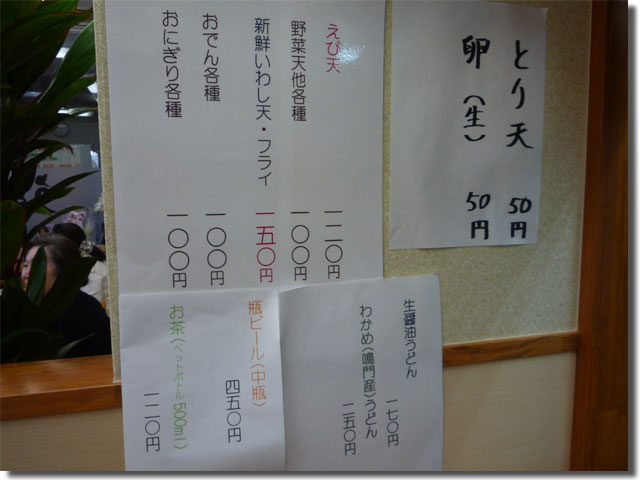 とり天 50円
卵(生) 50円
えび天 一二〇円
野菜天他各種 一〇〇円
新鮮いわし天・フライ 一五〇円
おでん各種 一〇〇円
おにぎり各種 一〇〇円
生醤油うどん 一七〇円
わかめ(鳴門産)うどん 二五〇円
瓶ビール(中瓶) 四五〇円
お茶(ペットボトル500ml) 一二〇円